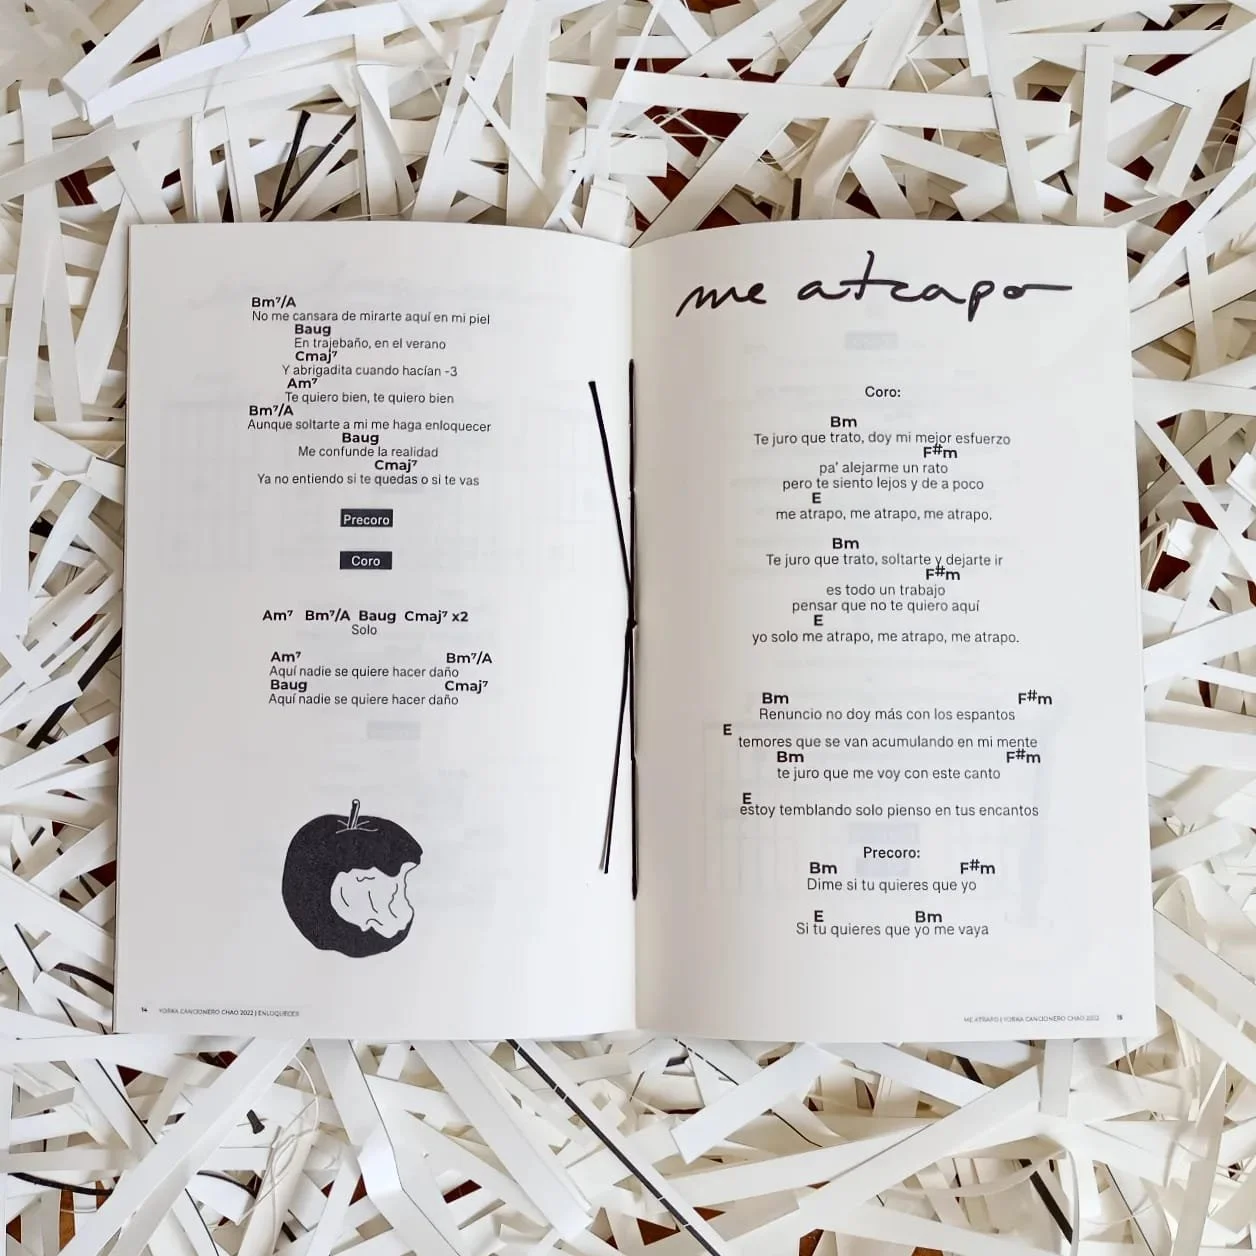 Bm⁷/A
No me cansara de mirarte aquí en mi piel
Baug
En trajebaño, en el verano
Cmaj⁷
Y abrigadita cuando hacían -3
Am⁷
Te quiero bien, te quiero bien
Bm⁷/A
Aunque soltarte a mi me haga enloquecer
Baug
Me confunde la realidad
Cmaj⁷
Ya no entiendo si te quedas o si te vas
Precoro
Coro
Am⁷ Bm⁷/A Baug Cmaj⁷ x2
Solo
Am⁷ Bm⁷/A
Aquí nadie se quiere hacer daño
Baug Cmaj⁷
Aquí nadie se quiere hacer daño
14 YORKA CANCIONERO CHAO 2022 | ENLOQUECER
me atrapo
Coro:
Bm
Te juro que trato, doy mi mejor esfuerzo
F#m
pa' alejarme un rato
pero te siento lejos y de a poco
E
me atrapo, me atrapo, me atrapo.
Bm
Te juro que trato, soltarte y dejarte ir
F#m
es todo un trabajo
pensar que no te quiero aquí
E
yo solo me atrapo, me atrapo, me atrapo.
Bm F#m
Renuncio no doy más con los espantos
E
temores que se van acumulando en mi mente
Bm F#m
te juro que me voy con este canto
E
estoy temblando solo pienso en tus encantos
Precoro:
Bm F#m
Dime si tu quieres que yo
E Bm
Si tu quieres que yo me vaya
ME ATRAPO | YORKA CANCIONERO CHAO 2022 15